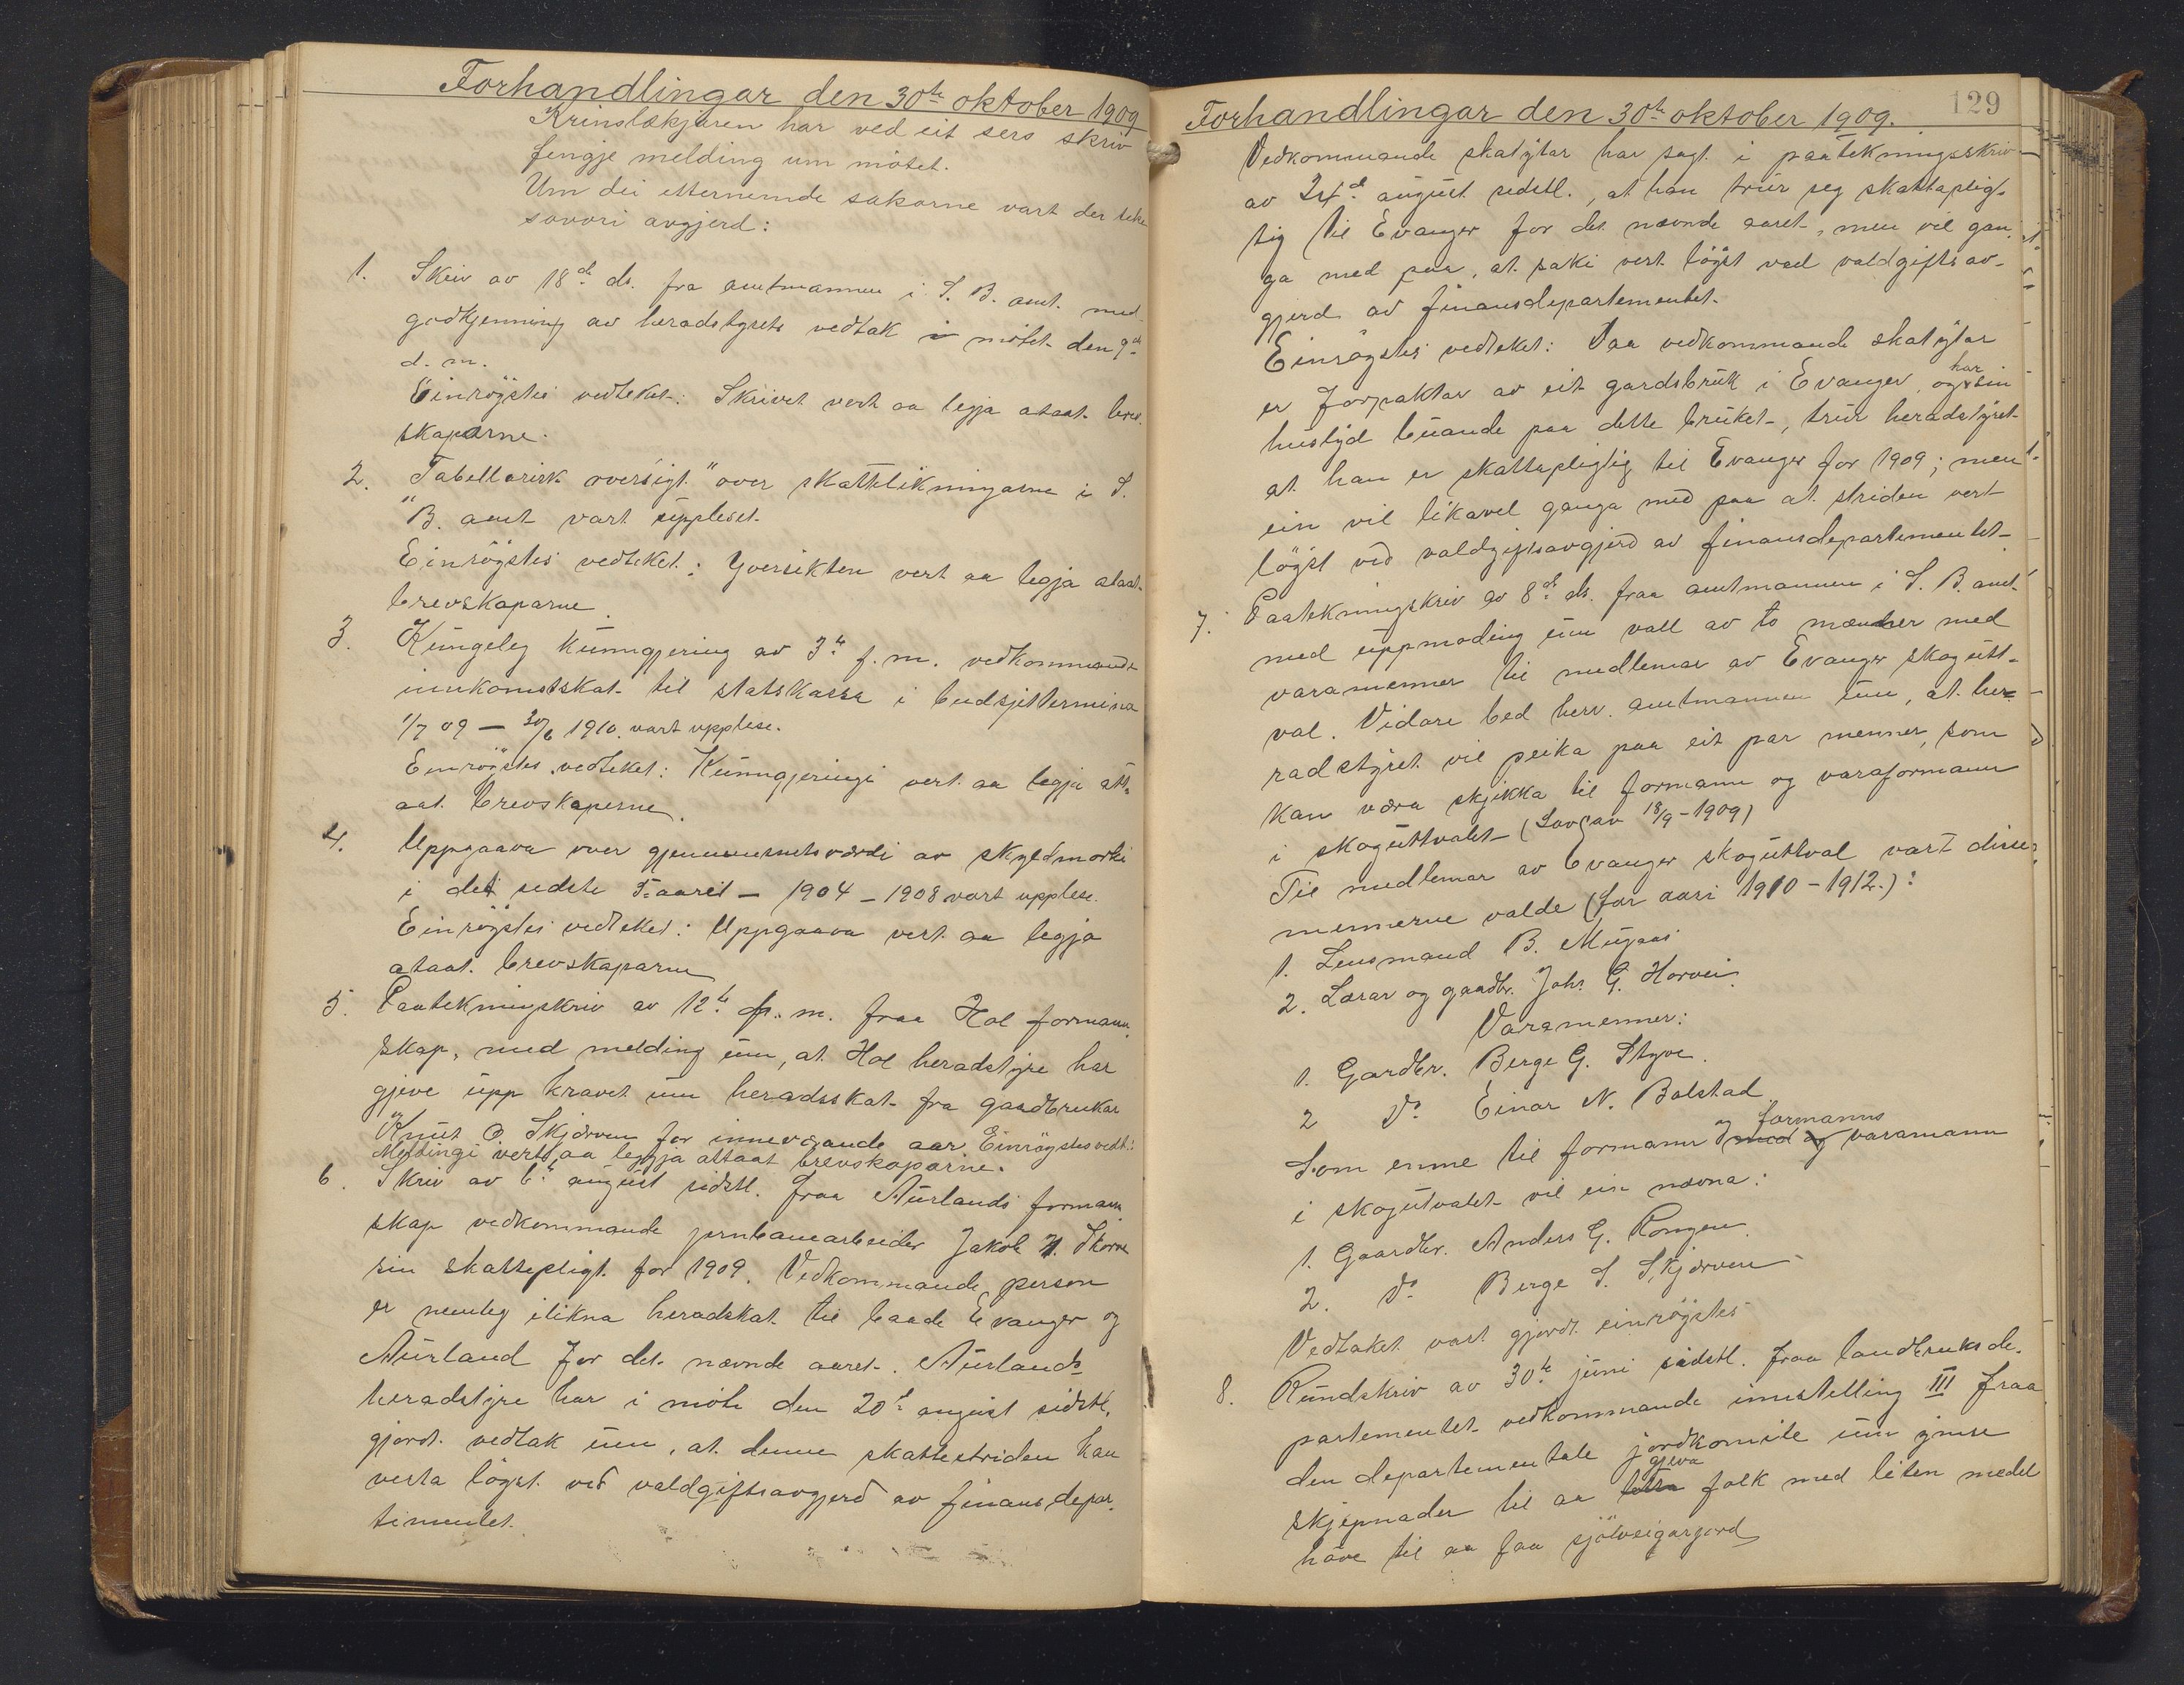 Forhandlingar den 30te oktober 1909
Krinslækjaren har ved eit sers skriv
fengje melding um mötet.
Um dei etternemde sakorne vart der teke
sovori avgjerd:
1. Skriv av 18de ds. fra amtmannen i S. B. amt. med
godkjenning av heradstyrets vedtak i mötet den 9de
d. m.
Einrögstes vedteket: Skrivet vert aa legja ataat brev-
skaparne.
2. "Tabellarisk oversigt" over skattelikningarne i S.
B. amt vart uppleset.
Einrögstes vedteket: Yversikten vert aa legja ataat
brevskaparne.
3. Kungeleg kunngjering av 3je f. m. vedkommande
innkomstskat til statskassa i budsjetterminen
1/7 09 — 30/6 1910 vart upplese.
Einrögstes vedteket: Kunngjeringi vert aa legja att-
aat brevskaparne.
4. Uppgaava over gjenumsnitsværdi av skyldmorki
i dei sidste 5-aaret — 1904 – 1908 vart upplese.
Einrögstes vedteket: Uppgaava vert aa legja
ataat brevskaparne
5. Paatekningskriv av 12te f. m. fraa Hol formann-
skap, med melding um, at Hol heradstyre har
gjeve upp kravet um heradsskat fra gaardbrukar
Knut O. Skjerven for inneværande aar. Einrögstes vedt:
Meldingi verte aa leggja attaat brevskaparne.
6. Skriv av 6te august sidstl. fraa Aurlands formann-
skap vedkommande jernbanearbeider Jakob Skorve
sin skattepligt for 1909. Vedkommande person
er nemleg ilikna heradskat til baade Evanger og
Aurland for det nævnde aaret. Aurlands
heradstyre har i möte den 20de august sidstl.
gjort vedtak um, at denne skattestriden kan
verta lögst ved valdgiftsavgjerd av finansdepar-
timentet.
Forhandlingar den 30te oktober 1909. 129
Vedkommande skatytar har sagt i paatekningsskriv
av 24de august sidstl., at han trur seg skattaplig-
tig til Evanger for det nævnde aaret, men vil gan-
ga med paa, at saki vert lögst ved valdgiftsav-
gjerd av finansdepartementet.
Einrögstes vedteket: Daa vedkommande skatytar
er forpaktar av eit gardsbruk i Evanger, og har sin
huslyd buande paa dette bruket, trur heradstyret
at han er skattepligtig til Evanger for 1909; men
ein vil likavel ganga med paa at striden vert
lögst ved valdgiftsavgjerd av finansdepartementet.
7. Paatekningskriv av 8de ds. fraa amtmannen i S. B. amt
med uppmoding um vall av to mænner med
varamenner til medlemar av Evanger skogutt-
val. Vidare bed herr amtmannen um, at her-
radstyret vil peika paa eit par menner, som
kan væra skjikka til formann og varaformann
i skoguttvalet (Lov av 18/9-1909)
Til medlemar av Evanger skoguttval vart disse
mennerne valde (for aari 1910-1912.):
1. Lensmand B. Mugaas
2. Lærar og gaardbr. Johs G. Horvei.
Varamenner:
1. Gardbr. Berge G. Styve.
2 Do Einar N. Bolstad
Som emne til formann og formanns varamann
i skogutvalet vil ein nævna:
1. Gaardbr. Anders G. Rongen
2. Do Berge S. Skjerven
Vedtaket vart gjort einrögstes
8. Rundskriv av 30te juni sidstl. fraa landbruksde-
partementet vedkommande innstelling III fraa
den departementale jordkomite um ymse
skjipnader til aa gjeva folk med liten medel
höve til aa faa sjölveigarjord